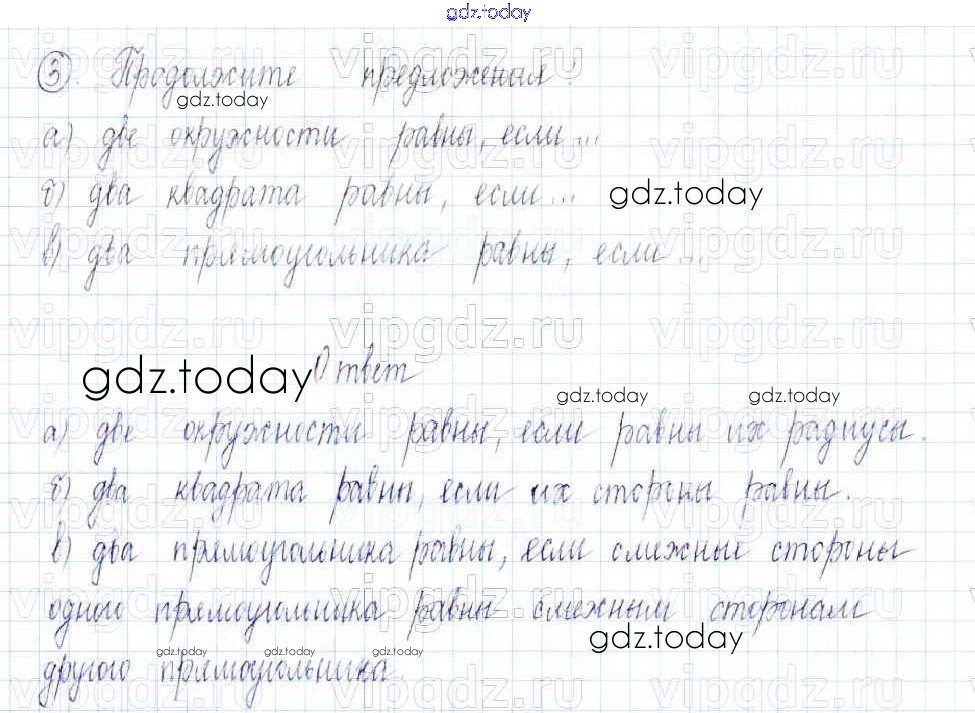 gdz.today
3). Продолжите предложения:
gdz.today
а) две окружности равны, если ...
б) два квадрата равны, если ... gdz.today
в) два прямоугольника равны, если ...
vipgdz.ru vipgdz.ru vipgdz.ru
gdz.today Ответ
gdz.today gdz.today
а) две окружности равны, если равны их радиусы.
б) два квадрата равны, если их стороны равны.
в) два прямоугольника равны, если смежные стороны
одного прямоугольника равны смежным сторонам
gdz.today
gdz.today gdz.today gdz.today
другого прямоугольника.